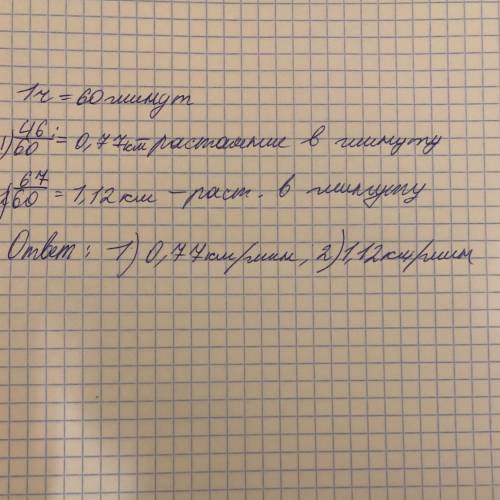 1ч = 60 минут
1) 46/60 = 0,77 км растаяние в минуту
2) 67/60 = 1,12 км - раст. в минуту
Ответ: 1) 0,77 км/мин, 2) 1,12 км/мин